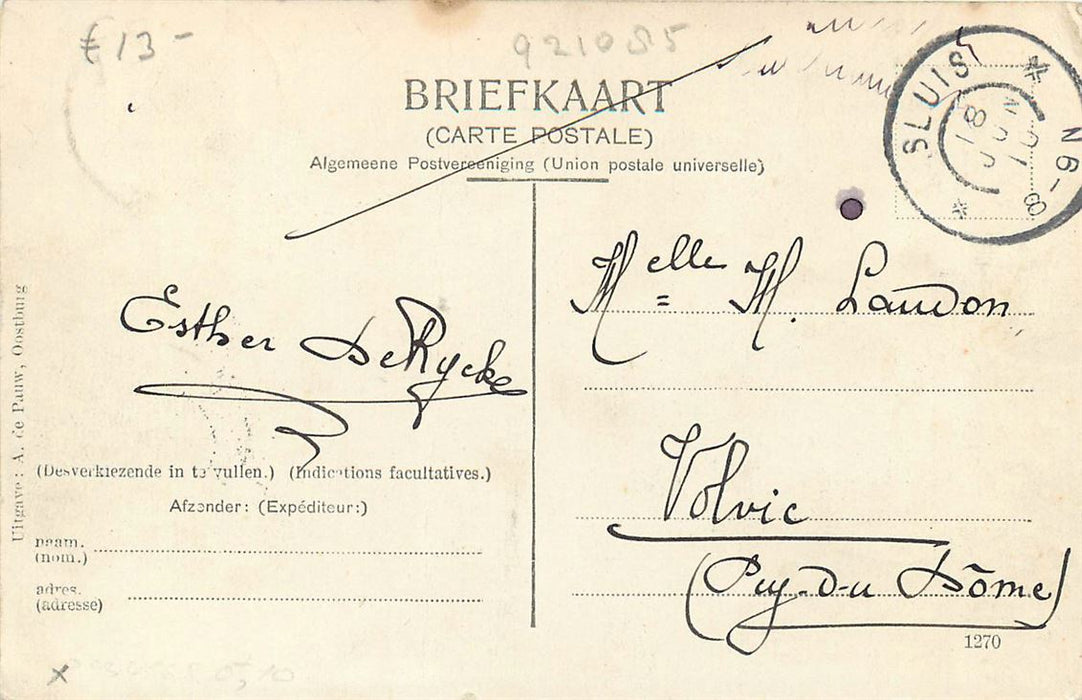 € 13 -
921085
BRIEFKAART
(CARTE POSTALE)
Algemeene Postvereeniging (Union postale universelle)
SLUIS
18 JUN
N 6-8
Melle M. Laudon
Esther DeRycke
Volvic
(Puy-du Dôme)
(Desverkiezende in te vullen.) (Indications facultatives.)
Afzender: (Expéditeur:)
naam.
(nom.)
adres.
(adresse)
Uitgave: A. de Pauw, Oostburg
1270